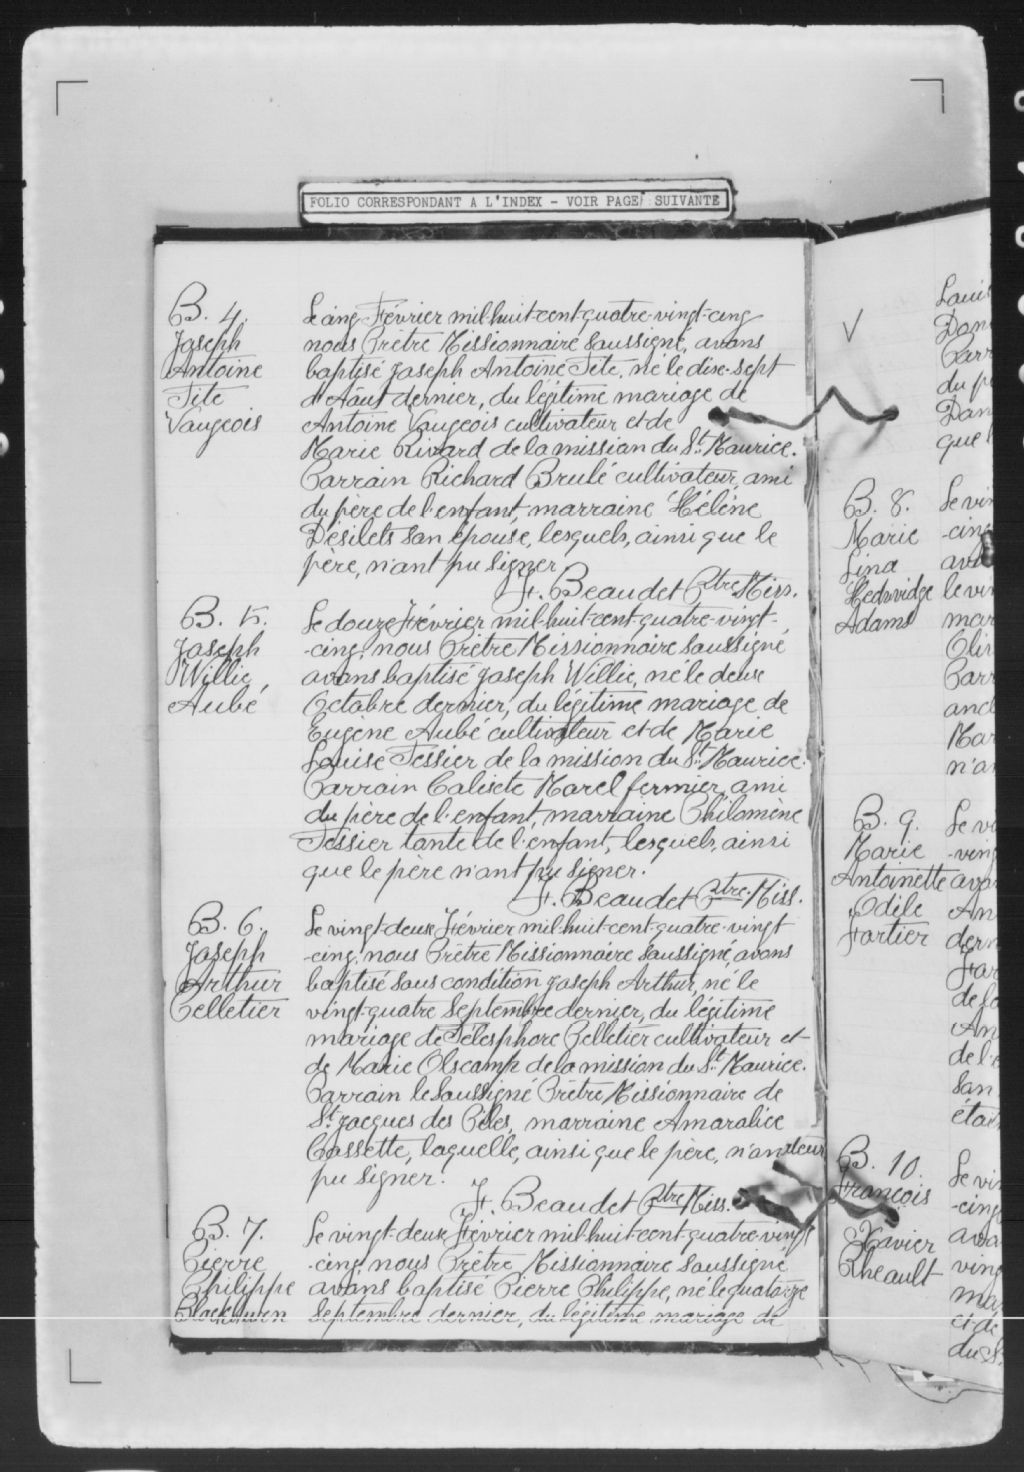 FOLIO CORRESPONDANT A L'INDEX - VOIR PAGE SUIVANTE
B. 4.
Joseph
Antoine
Tite
Vaugeois
Le cinq Février mil-huit-cent-quatre-vingt-cinq
nous Prêtre Missionnaire soussigné, avons
baptisé Joseph Antoine Tite, né le dix-sept
d'Août dernier, du légitime mariage de
Antoine Vaugeois cultivateur et de
Marie Rivard de la mission du St. Maurice.
Parrain Richard Brulé cultivateur, ami
du père de l'enfant, marraine Hélène
Désilets son épouse, lesquels, ainsi que le
père, n'ont pu signer.
F. Beaudet Ptre Miss.
B. 5.
Joseph
Willie
Aubé
Le douze Février mil-huit-cent-quatre-vingt-
-cinq, nous Prêtre Missionnaire soussigné
avons baptisé Joseph Willie, né le deux
Octobre dernier, du légitime mariage de
Eugène Aubé cultivateur et de Marie
Louise Tessier de la mission du St. Maurice.
Parrain Calixte Morel fermier, ami
du père de l'enfant, marraine Philomène
Tessier tante de l'enfant, lesquels, ainsi
que le père n'ont pu signer.
F. Beaudet Ptre. Miss.
B. 6.
Joseph
Arthur
Pelletier
Le vingt-deux Février mil-huit-cent-quatre-vingt
-cinq, nous Prêtre Missionnaire soussigné, avons
baptisé sous condition Joseph Arthur, né le
vingt-quatre Septembre dernier, du légitime
mariage de Télesphore Pelletier cultivateur et
de Marie Olscamp de la mission du St. Maurice.
Parrain le soussigné Prêtre Missionnaire de
St. Jacques des Piles, marraine Amaralice
Cassette, laquelle, ainsi que le père, n'ont
pu signer.
F. Beaudet Ptre Miss.
B. 7.
Pierre
Philippe
Le vingt-deux Février mil-huit-cent-quatre-vingt
-cinq, nous Prêtre Missionnaire soussigné
avons baptisé Pierre Philippe, né le quatorze
Septembre dernier, du légitime mariage de
V
que
B. 8.
Marie
Lina
Hedwidge
Adams
B. 9.
Marie
Antoinette
Odile
Fortier
B. 10.
François
Xavier
Rheault